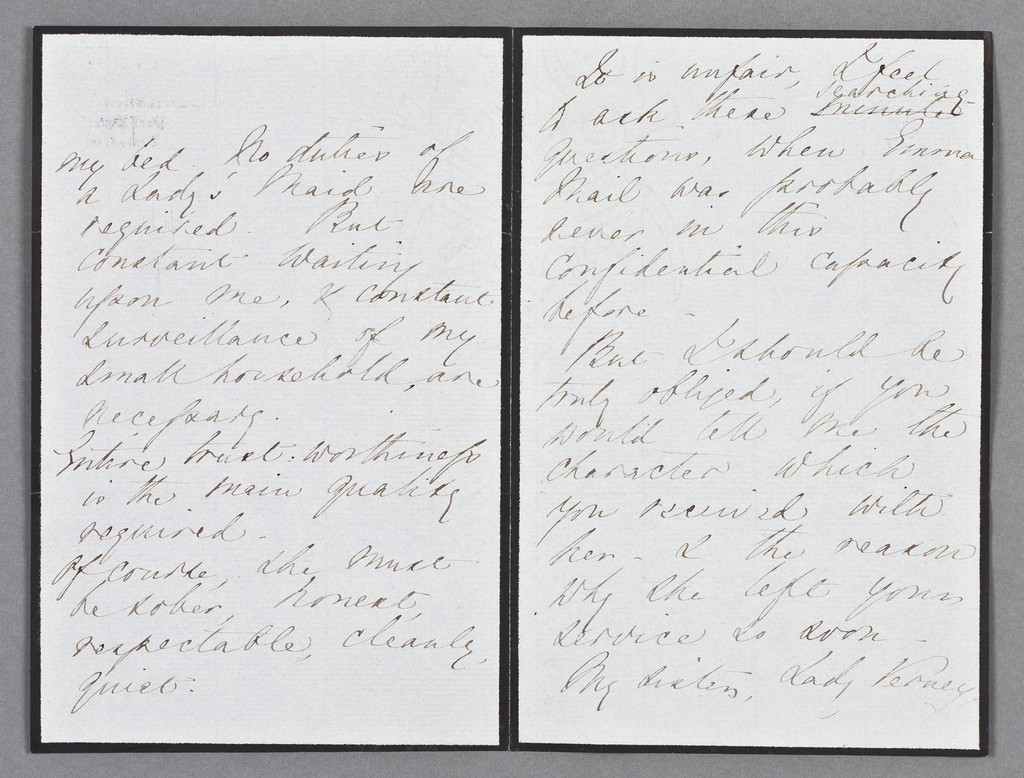 my bed. No duties of
a Lady's Maid are
required. But
constant waiting
upon me, & constant
surveillance of my
small household, are
necessary.
Entire trust-worthiness
is the main quality
required.
Of course, she must
be sober, honest,
respectable, cleanly,
quiet.
It is unfair, I feel
searching
to ask these minute
questions, when Emma
Mail was probably
never in this
confidential capacity
before -
But I should be
truly obliged, if you
would tell me the
character which
you received with
her - & the reason
why she left your
service so soon -
My sister, Lady Verney,